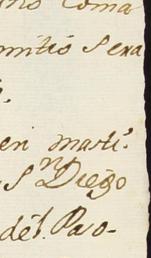 ino Coma
mitio Sera
en marti.
n Diego
del. Pao-